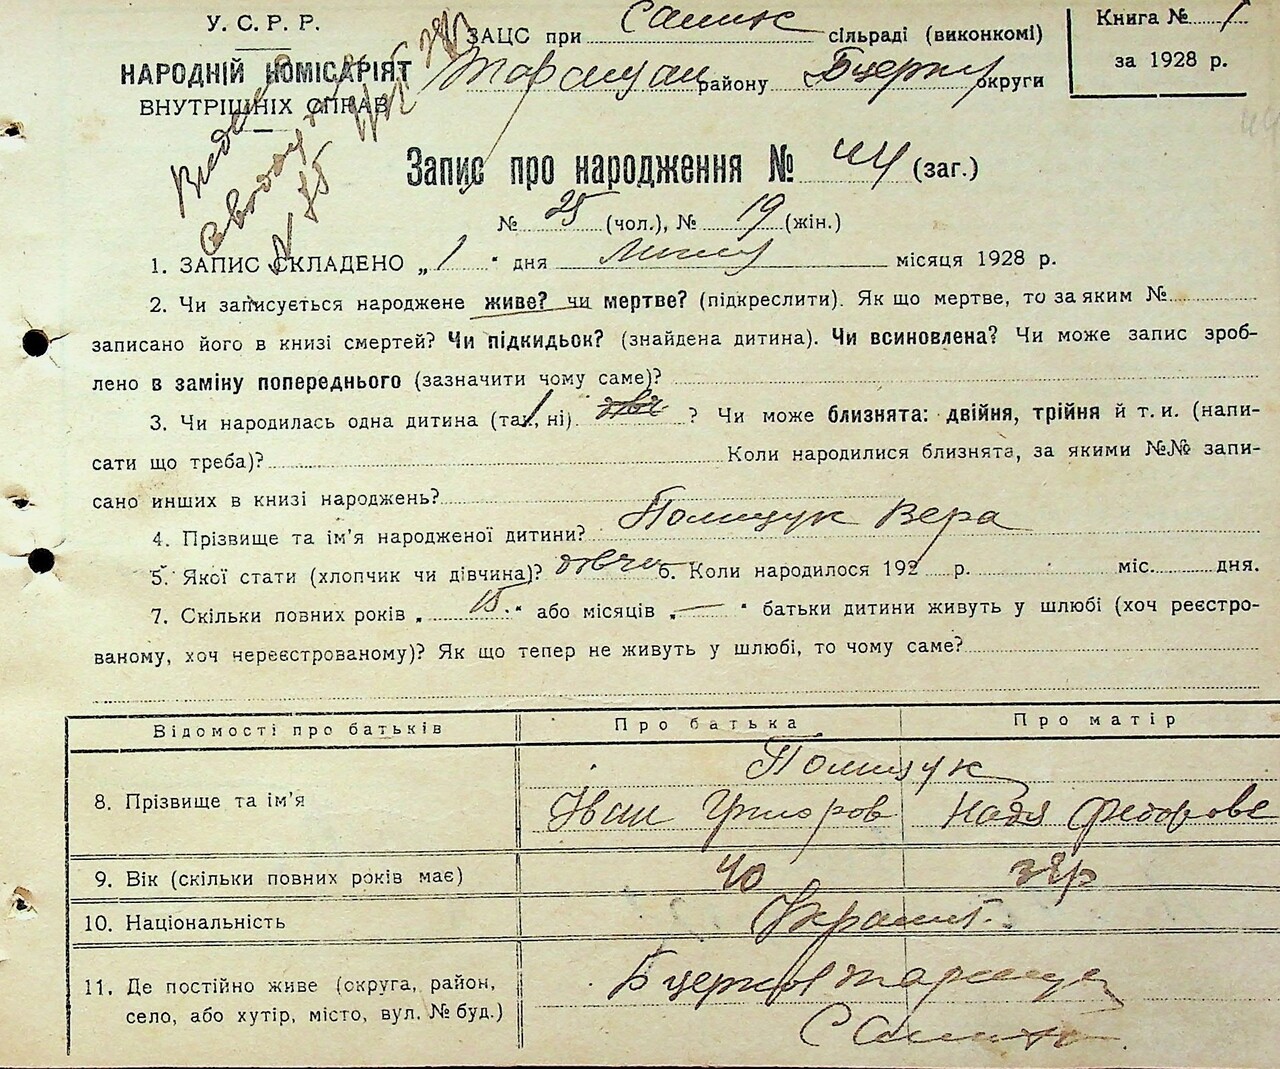 У. С. Р. Р.
НАРОДНІЙ КОМІСАРІЯТ
ВНУТРІШНІХ СПРАВ
ЗАЦС при сільраді (виконкомі)
району Бцеркв округи
Книга № 1
за 1928 р.
Запис про народження № 44 (заг.)
№ 25 (чол.), № 19 (жін.)
1. ЗАПИС СКЛАДЕНО „ 1 " дня липня місяця 1928 р.
2. Чи записується народжене живе? чи мертве? (підкреслити). Як що мертве, то за яким №
записано його в книзі смертей? Чи підкидьок? (знайдена дитина). Чи всиновлена? Чи може запис зроб-
лено в заміну попереднього (зазначити чому саме)?
3. Чи народилась одна дитина (так, ні) ? Чи може близнята: двійня, трійня й т. и. (напи-
сати що треба)? Коли народилися близнята, за якими №№ запи-
сано инших в книзі народжень?
4. Прізвище та ім'я народженої дитини? Полищук Вера
5. Якої стати (хлопчик чи дівчина)? 6. Коли народилося 192 р. міс. дня.
7. Скільки повних років „ 15. " або місяців „ — " батьки дитини живуть у шлюбі (хоч реєстро-
ваному, хоч нереєстрованому)? Як що тепер не живуть у шлюбі, то чому саме?
Відомості про батьків
Про батька
Про матір
8. Прізвище та ім'я
Полищук
Іван Григоров
Надя Федоровс
9. Вік (скільки повних років має)
40
10. Національність
Украинс.
11. Де постійно живе (округа, район,
село, або хутір, місто, вул. № буд.)
Бцерков